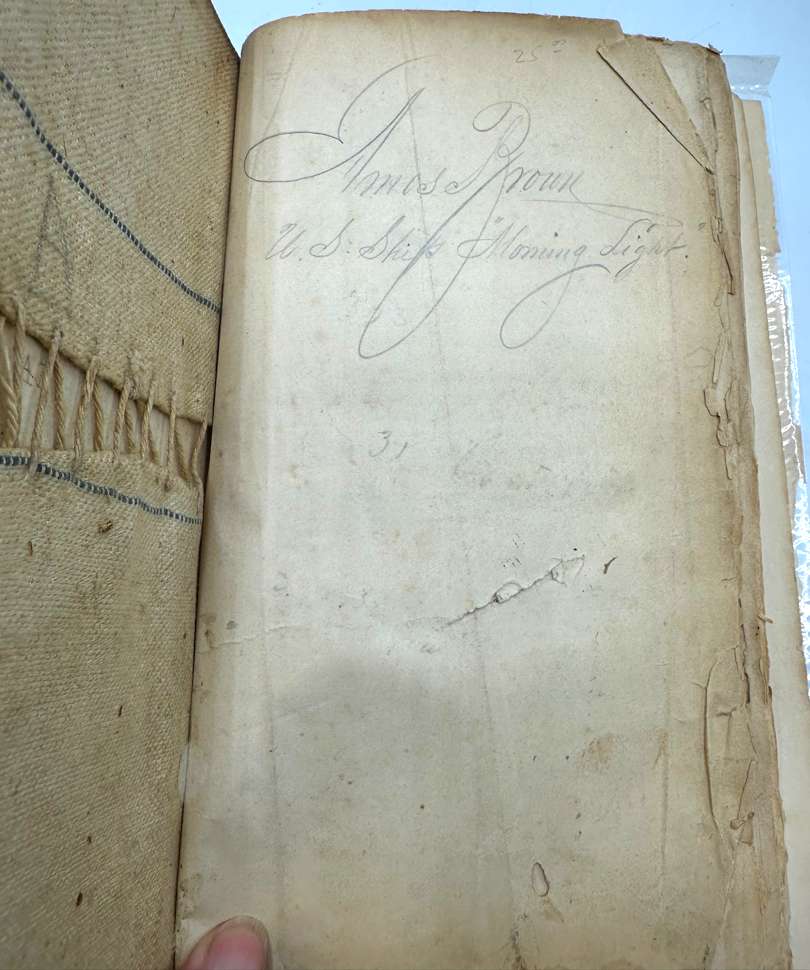 25
Amos Brown
U. S. Ship "Morning Light."
3,